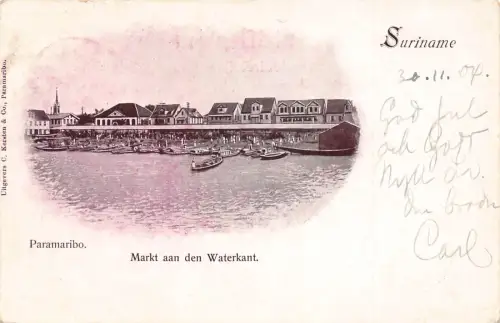 Suriname
30.11.04.
God Jul
och Godt
Nytt År.
Carl
Uitgevers C. Kersten & Co., Paramaribo.
Paramaribo.
Markt aan den Waterkant.